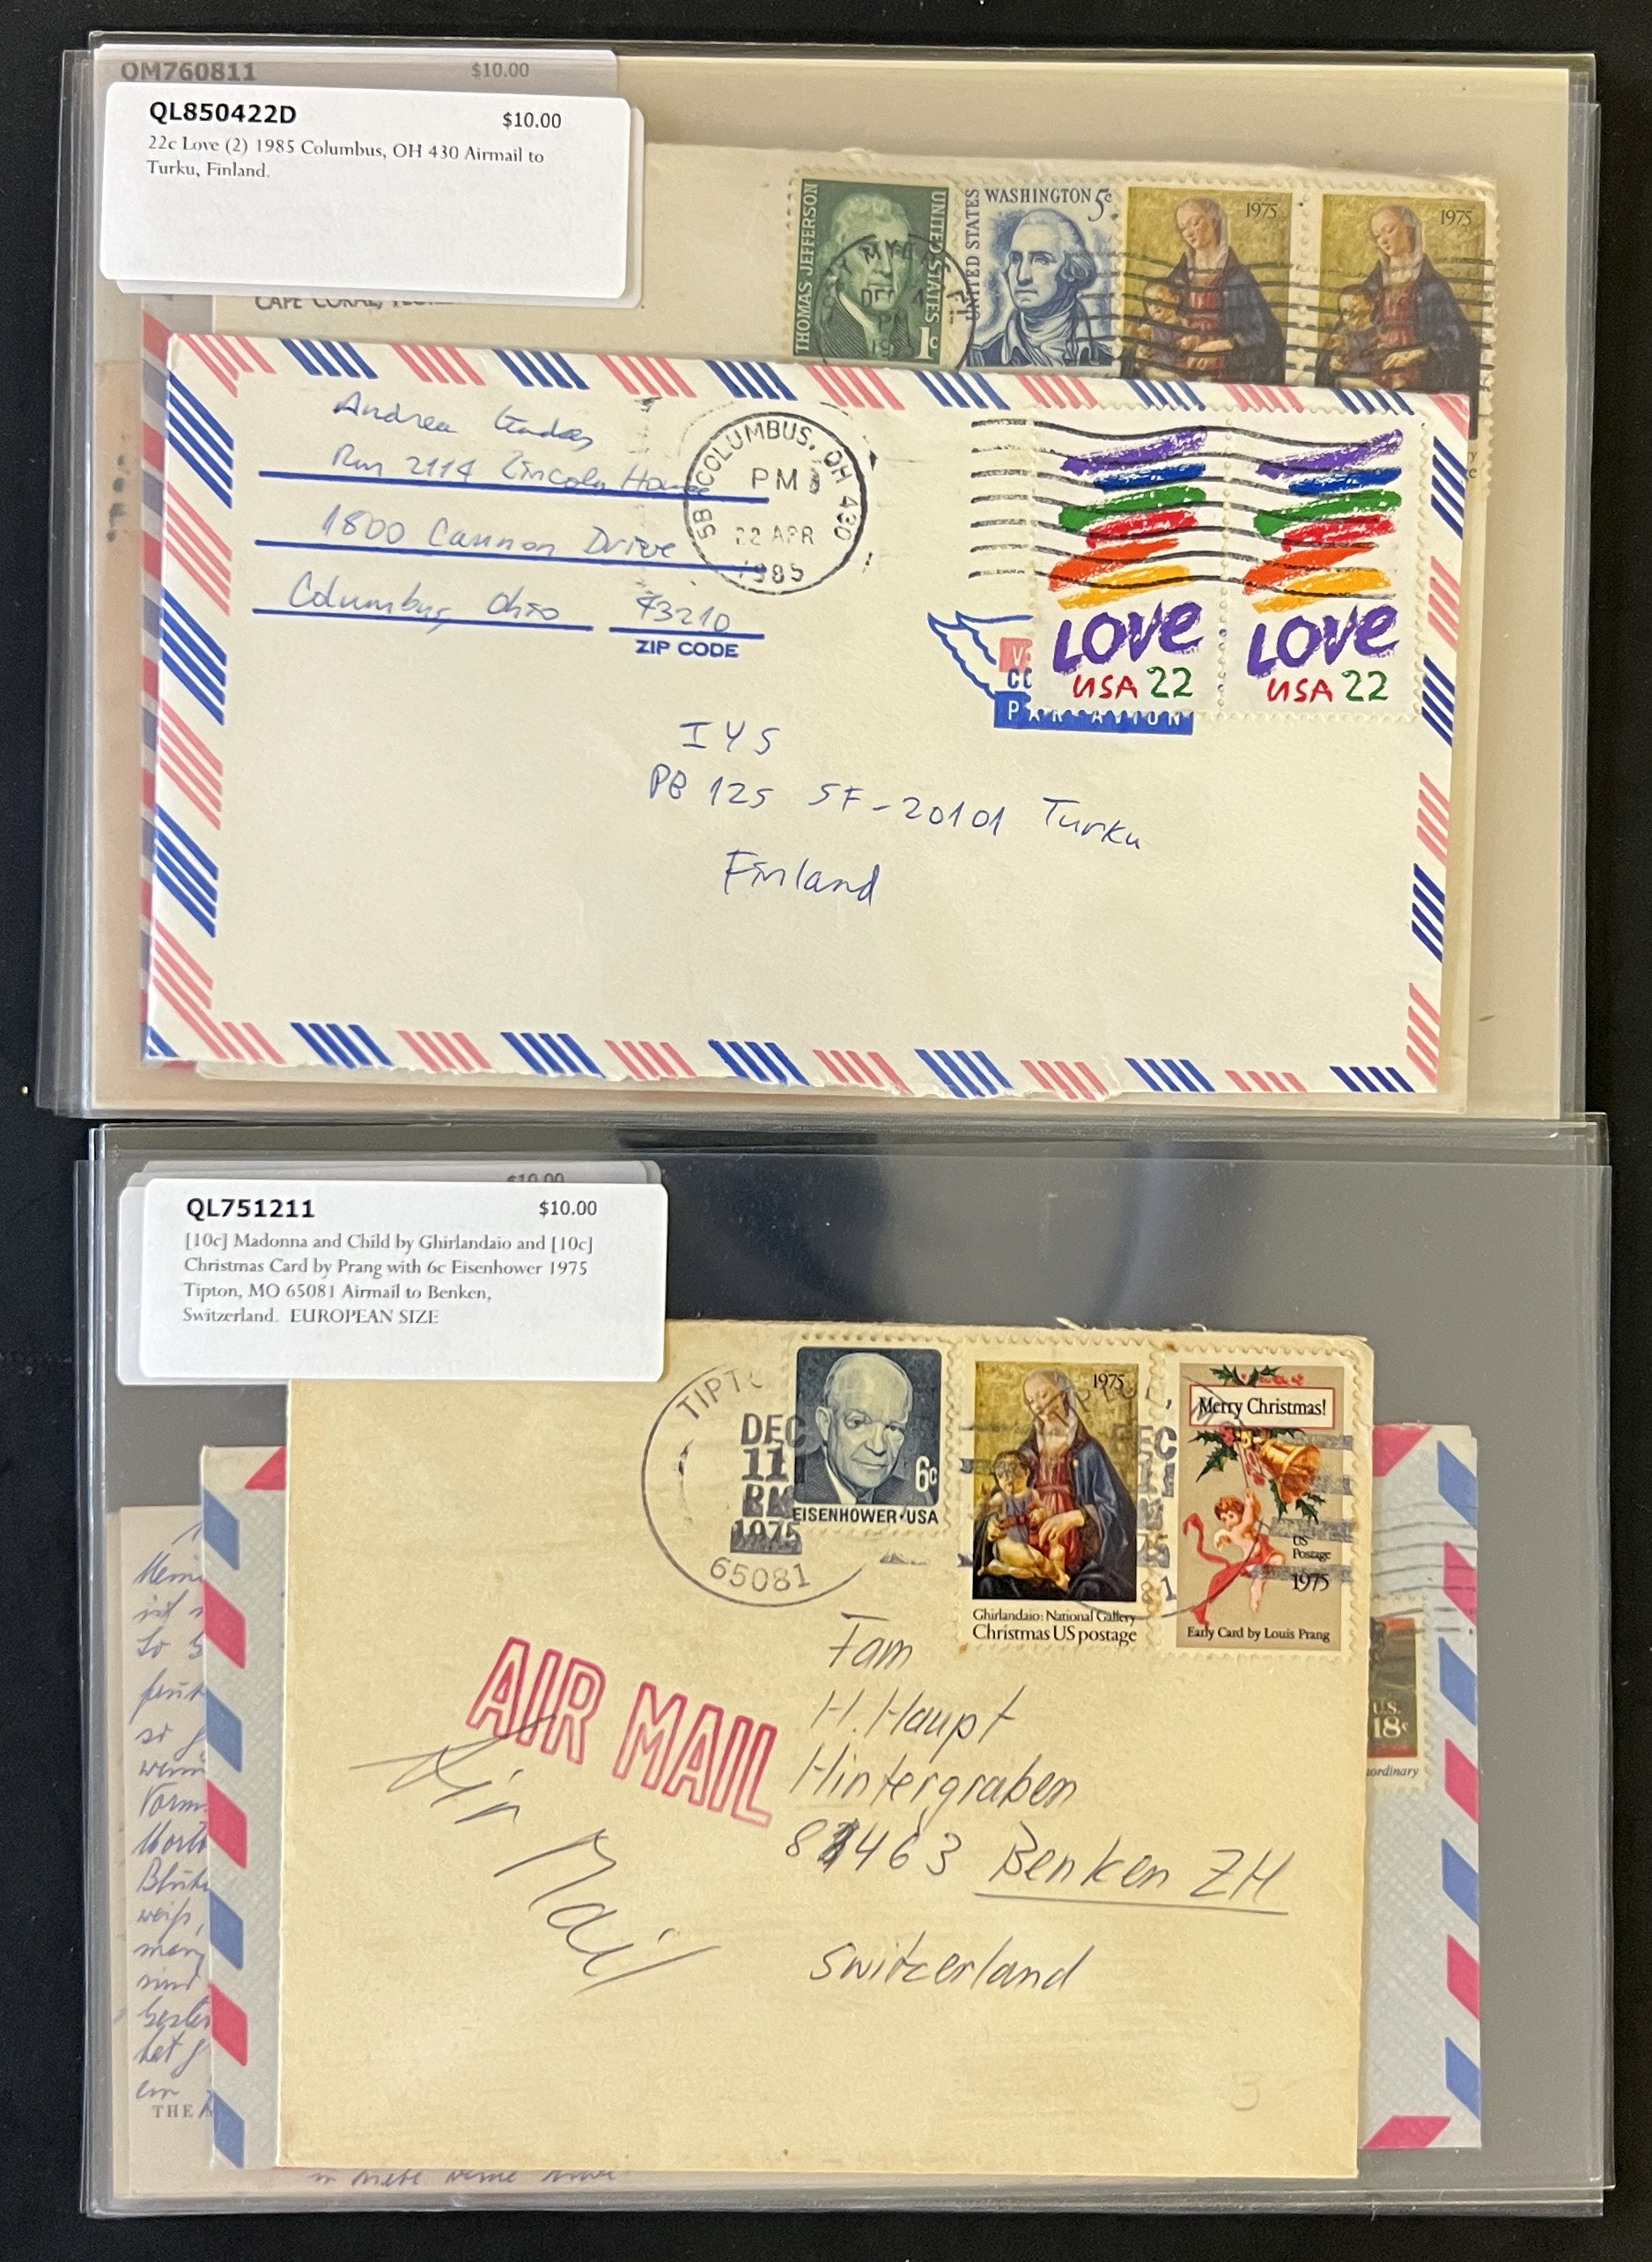 OM760811 $10.00
QL850422D $10.00
22c Love (2) 1985 Columbus, OH 430 Airmail to
Turku, Finland.
CAPE CORAL,
THOMAS JEFFERSON
UNITED STATES
1c
DEC 4
PM
UNITED STATES
WASHINGTON 5c
1975
1975
Andrea
Rm 2114 Lincoln House
1800 Cannon Drive
Columbus, Ohio 43210
ZIP CODE
SB COLUMBUS, OH 430
PM
22 APR
1985
LOVE
USA 22
LOVE
USA 22
PAR AVION
IYS
PB 125 SF-20101 Turku
Finland
$10.00
QL751211 $10.00
[10c] Madonna and Child by Ghirlandaio and [10c]
Christmas Card by Prang with 6c Eisenhower 1975
Tipton, MO 65081 Airmail to Benken,
Switzerland. EUROPEAN SIZE
TIPTO
DEC
11
1975
65081
6c
EISENHOWER·USA
1975
Ghirlandaio: National Gallery
Christmas US postage
Merry Christmas!
US
Postage
1975
Early Card by Louis Prang
AIR MAIL
Air Mail
Fam
H. Haupt
Hintergraben
8463 Benken ZH
Switzerland
U.S.
18c
ordinary
weiß,
sind
THE